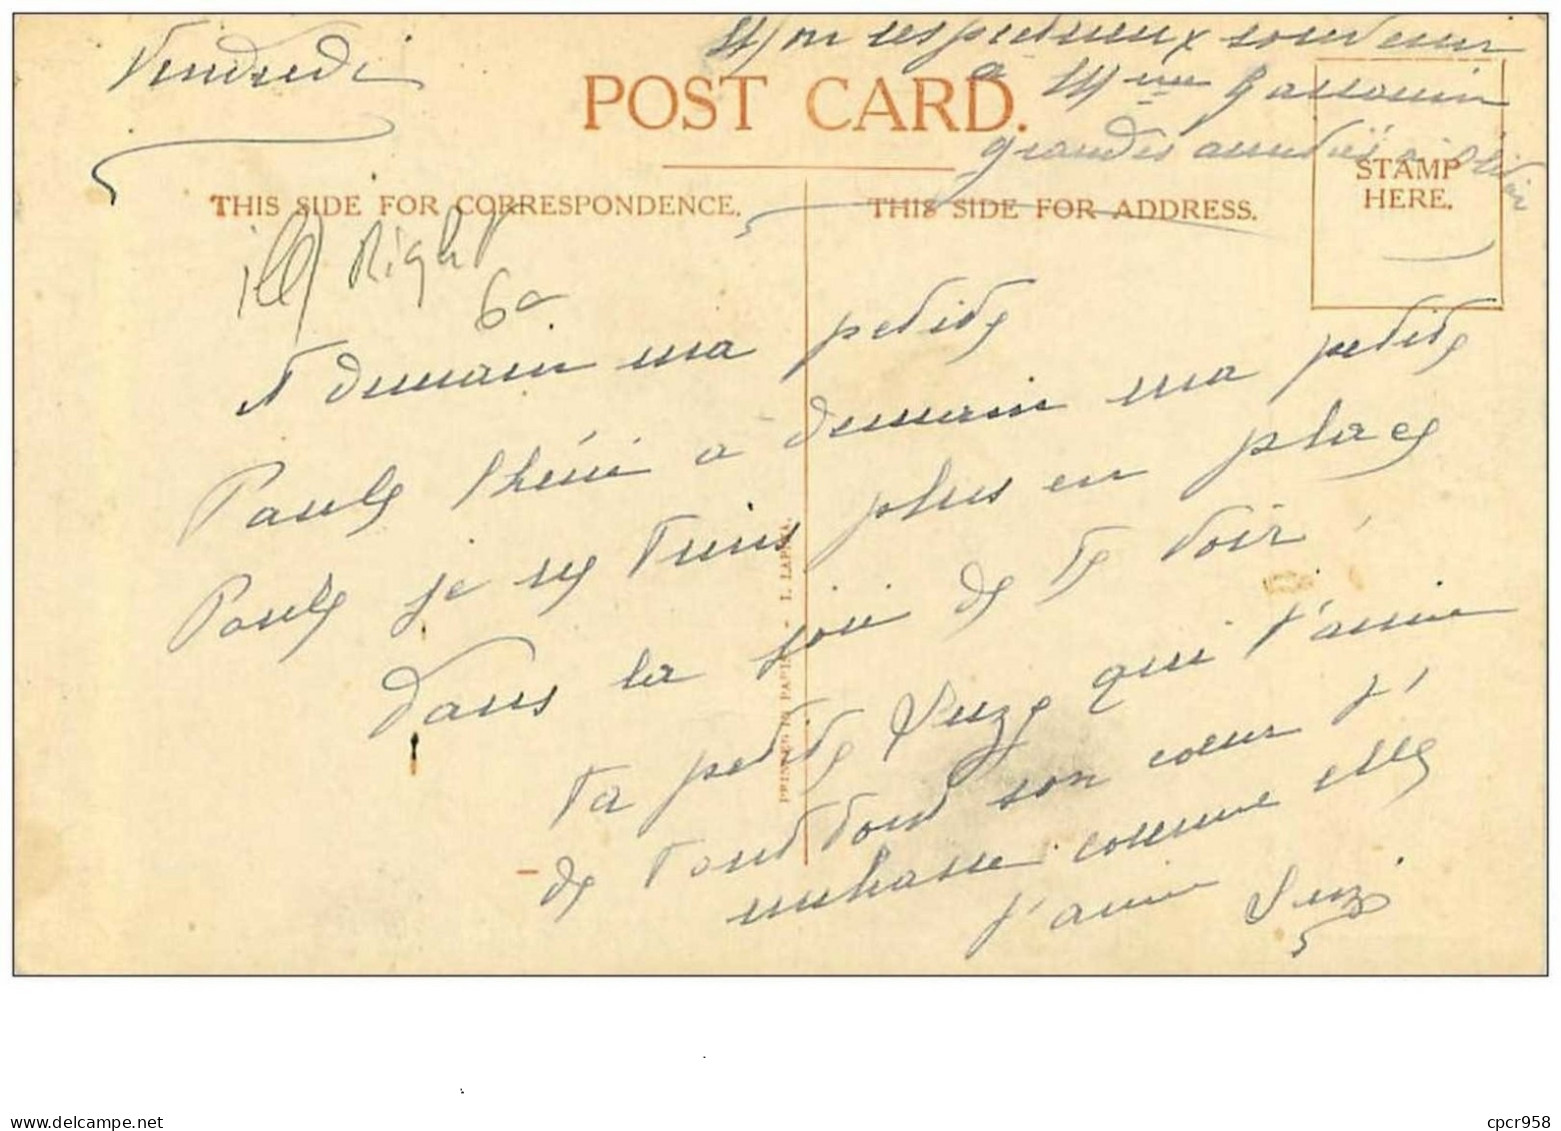 Vendredi
Mon respectueux souvenir
à Mme Gassouin
grandes amitiés à
POST CARD.
STAMP
HERE.
THIS SIDE FOR CORRESPONDENCE.
THIS SIDE FOR ADDRESS.
ill Right
60
A demain ma petite
Paule chérie à demain ma petite
Paule je ne tiens plus en place
dans la joie de te voir
ta petite Suze qui t'aime
de tout tout son coeur t'
embrasse comme elle
t'aime Suze
PRINTED IN PARIS - I. LAPINA.
www.delcampe.net
cpcr958